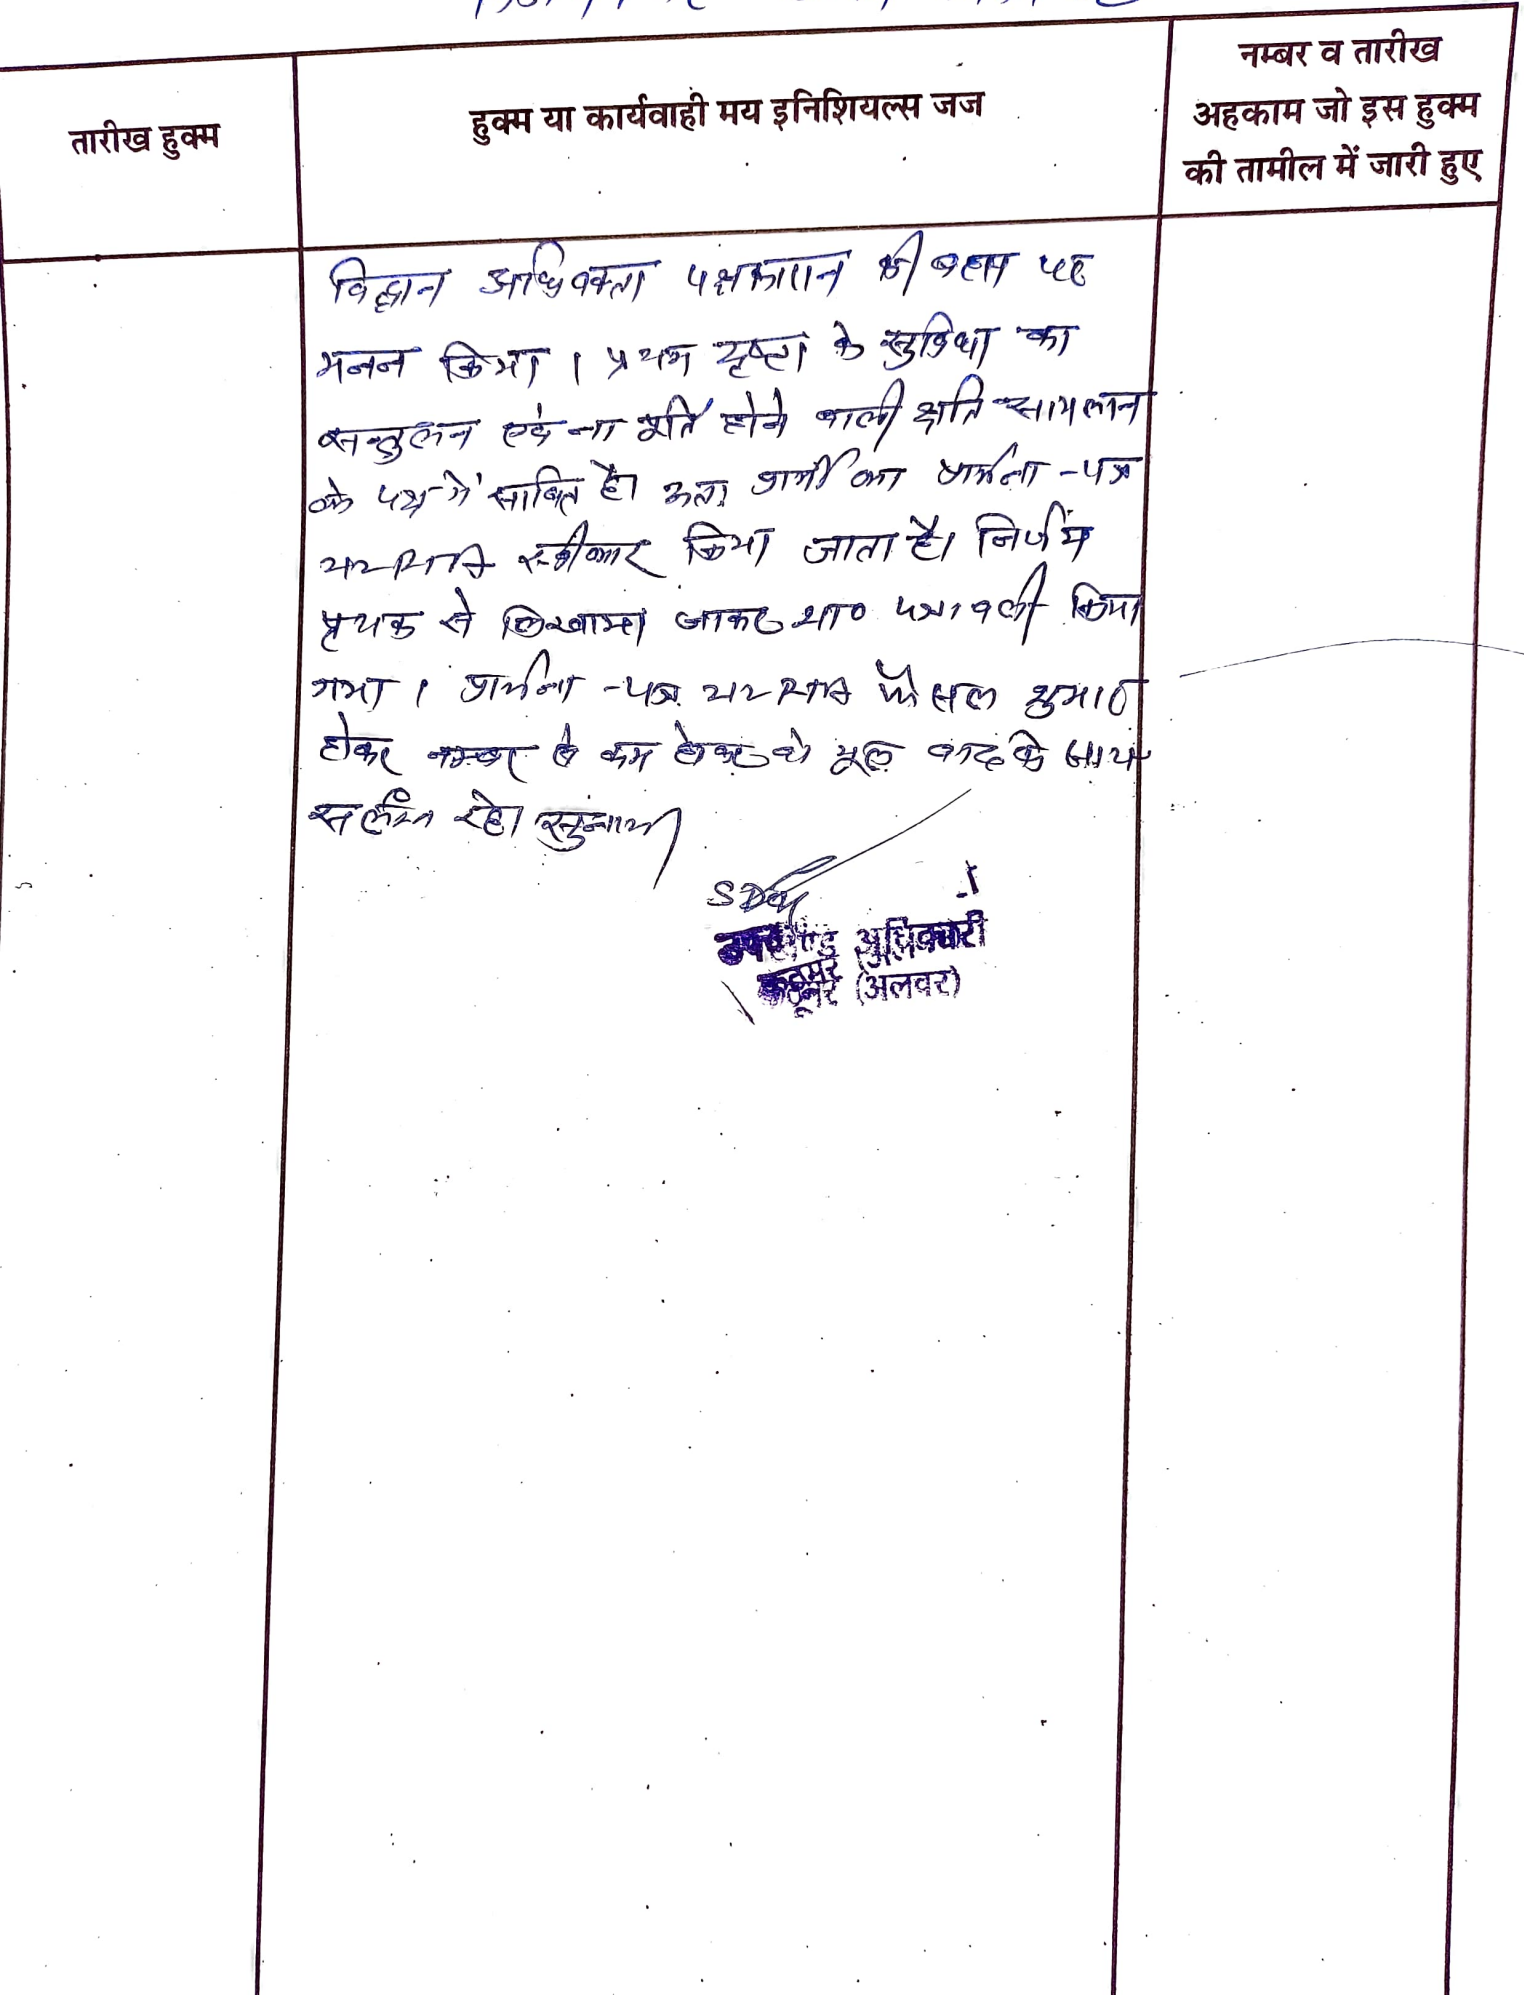 तारीख हुक्म
हुक्म या कार्यवाही मय इनिशियल्स जज
नम्बर व तारीख
अहकाम जो इस हुक्म
की तामील में जारी हुए
विद्वान अधिवक्ता पक्षकारान की बहस पर
मनन किया। प्रथम दृष्टा के सुविधा का
सन्तुलन एवं ना पूर्ति होने वाली क्षति सायलान
के पक्ष में साबित है। अतः प्रार्थी का प्रार्थना-पत्र
स्वीकार किया जाता है। निर्णय
पृथक से लिखाया जाकर शा० पत्रावली किया
गया। प्रार्थना-पत्र फैसल शुमार
होकर नम्बर से कम होकर मूल वाद के साथ
सलंग्न रहे। सुनाया
SDO
उपखण्ड अधिकारी
कठूमर (अलवर)